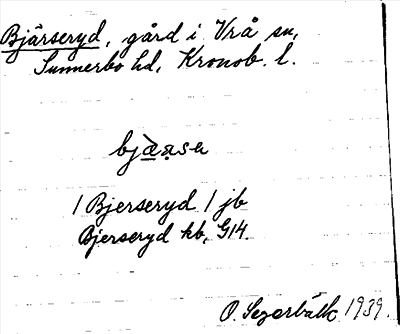 Bjärseryd, gård i Vrå sn,
Sunnerbo hd, Kronob. l.
/ Bjerseryd / jb
Bjerseryd kb, G14.
O. Segerbäck 1939.